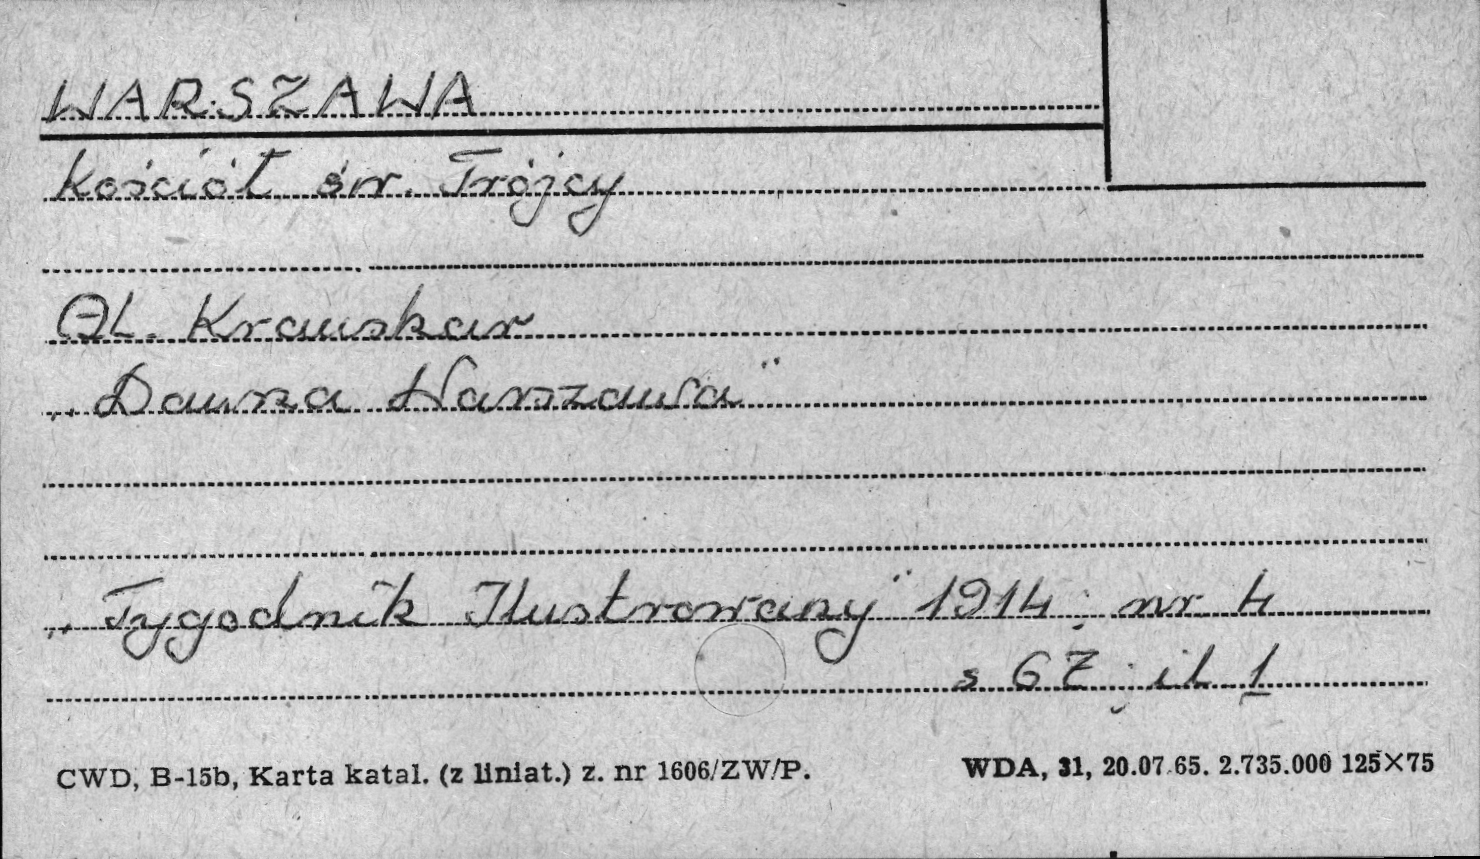 WARSZAWA
kościół św. Trójcy
Al. Kraushar
„Dawna Warszawa"
„Tygodnik Ilustrowany" 1914; nr 4
s 67; il 1
CWD, B-15b, Karta katal. (z liniat.) z. nr 1606/ZW/P.
WDA, 31, 20.07.65. 2.735.000 125×75